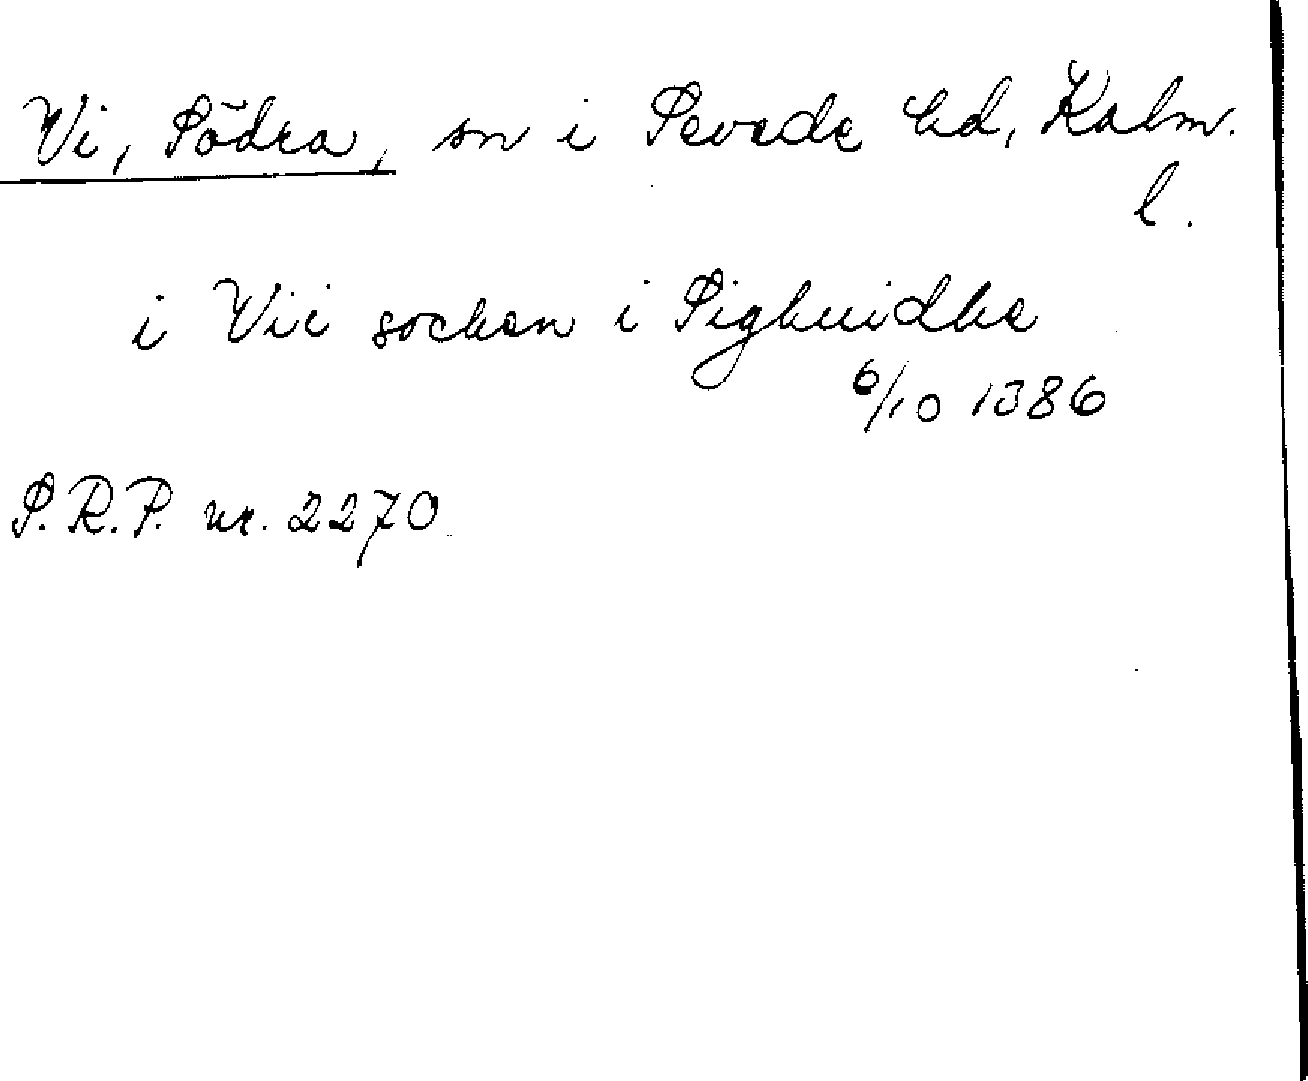 Vi, Södra, sn i Sevede hd, Kalm.
l.
i Vii sochen i Sighuidhe
6/10 1386
S.R.P. nr. 2270